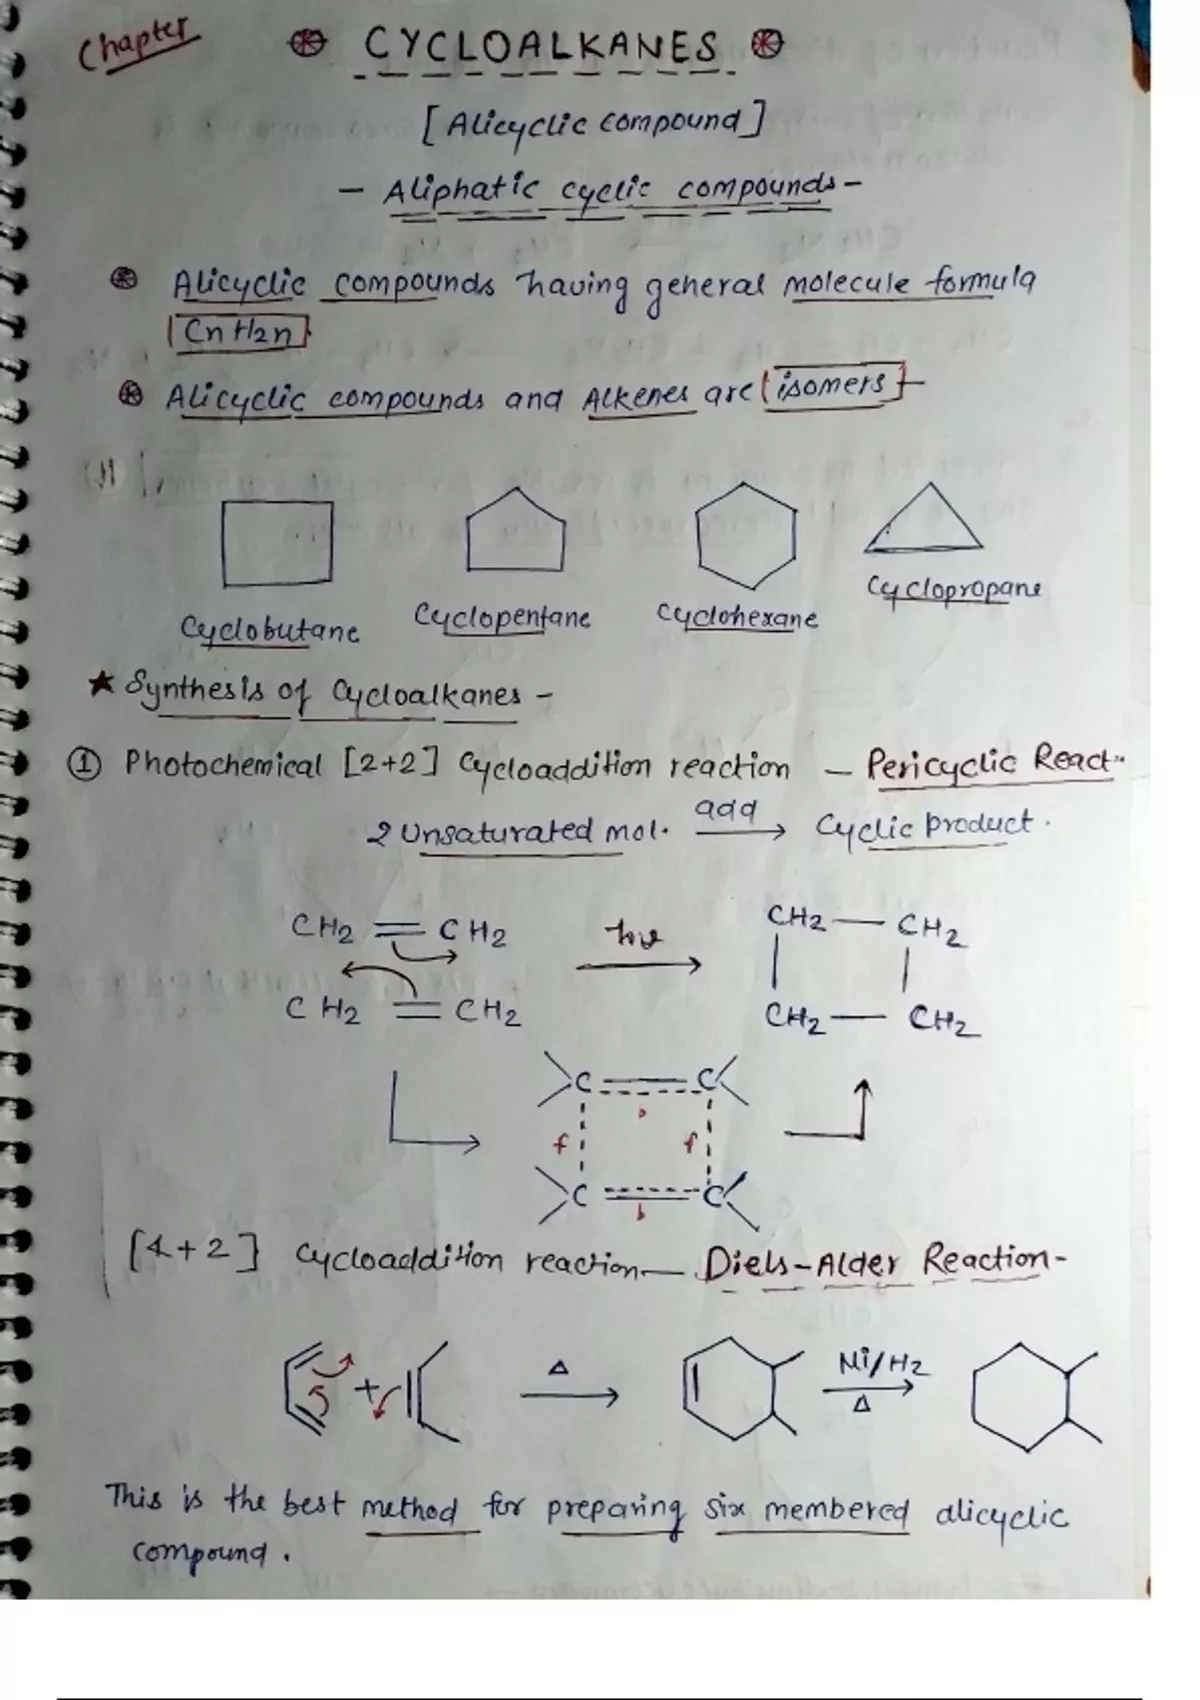 Chapter
CYCLOALKANES
[Alicyclic compound]
- Aliphatic cyclic compounds -
Alicyclic compounds having general molecule formula
CnH2n
Alicyclic compounds and Alkenes are isomers -
Cyclobutane Cyclopentane Cyclohexane Cyclopropane
★ Synthesis of Cycloalkanes -
① Photochemical [2+2] Cycloaddition reaction - Pericyclic React..
2 Unsaturated mol. add → Cyclic product.
CH2 = CH2 hν → CH2 — CH2
CH2 = CH2 CH2 — CH2
C C
b
f f
C C
b
[4+2] Cycloaddition reaction — Diels-Alder Reaction -
+ Δ → Ni/H2 → Δ
This is the best method for preparing six membered alicyclic
compound.